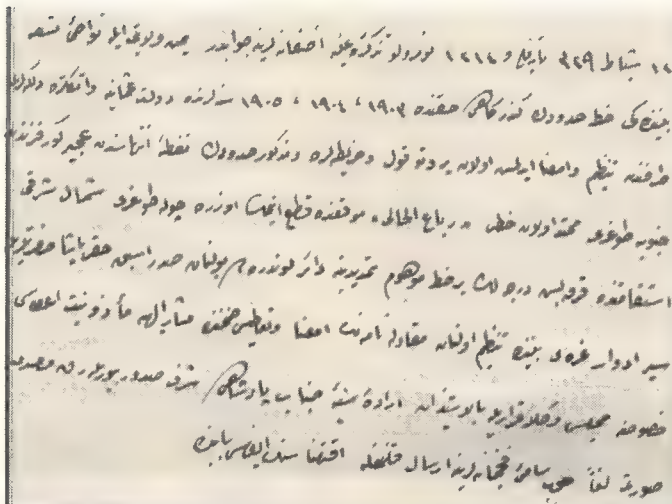 ١٢ شباط ٣٢٩ تاريخ و ١٢١٤ نومرولو تذكره علیه آصفانه لرینه جوابدر یمن ولایتی ایله نواحئ تسعه
بیننده کی خط حدودك كذركاهی حقنده ١٩٠٣ ، ١٩٠٤ ، ١٩٠٥ سنه لرنده دولت عثمانیه و انكلتره
طرفندن تنظیم و امضا ایدلمش اولان پروتوقول و خریطه لره و مذكور حدودك نقطۀ انتهاسندن
جنوبه طوغری ممتد اولان خطی ربع الخالی موقعنده قطع ایتمك اوزره چوله طوغری شمال شرقی
استقامتنده قرق بش درجه لك بر خط موهوم تمدیدینه دائر لوندره ده بولنان صدر اسبق حقی پاشا حضرتلریله
سیر ادوار غره ی بیننده تنظیم اولنان مقاوله نامه نك امضا و تعاطیسی ضمننده مشار الیهه مأذونیت اعطاسی
خصوصنه مجلس وكلا قراریله بالاستیذان اراده سنیۀ جناب پادشاهی شرف صدور بیوریله رق
صورتی لفا سامئ فخیمانه لرینه ارسال قلنمغله اقتضاسنك ایفاسی بابنده